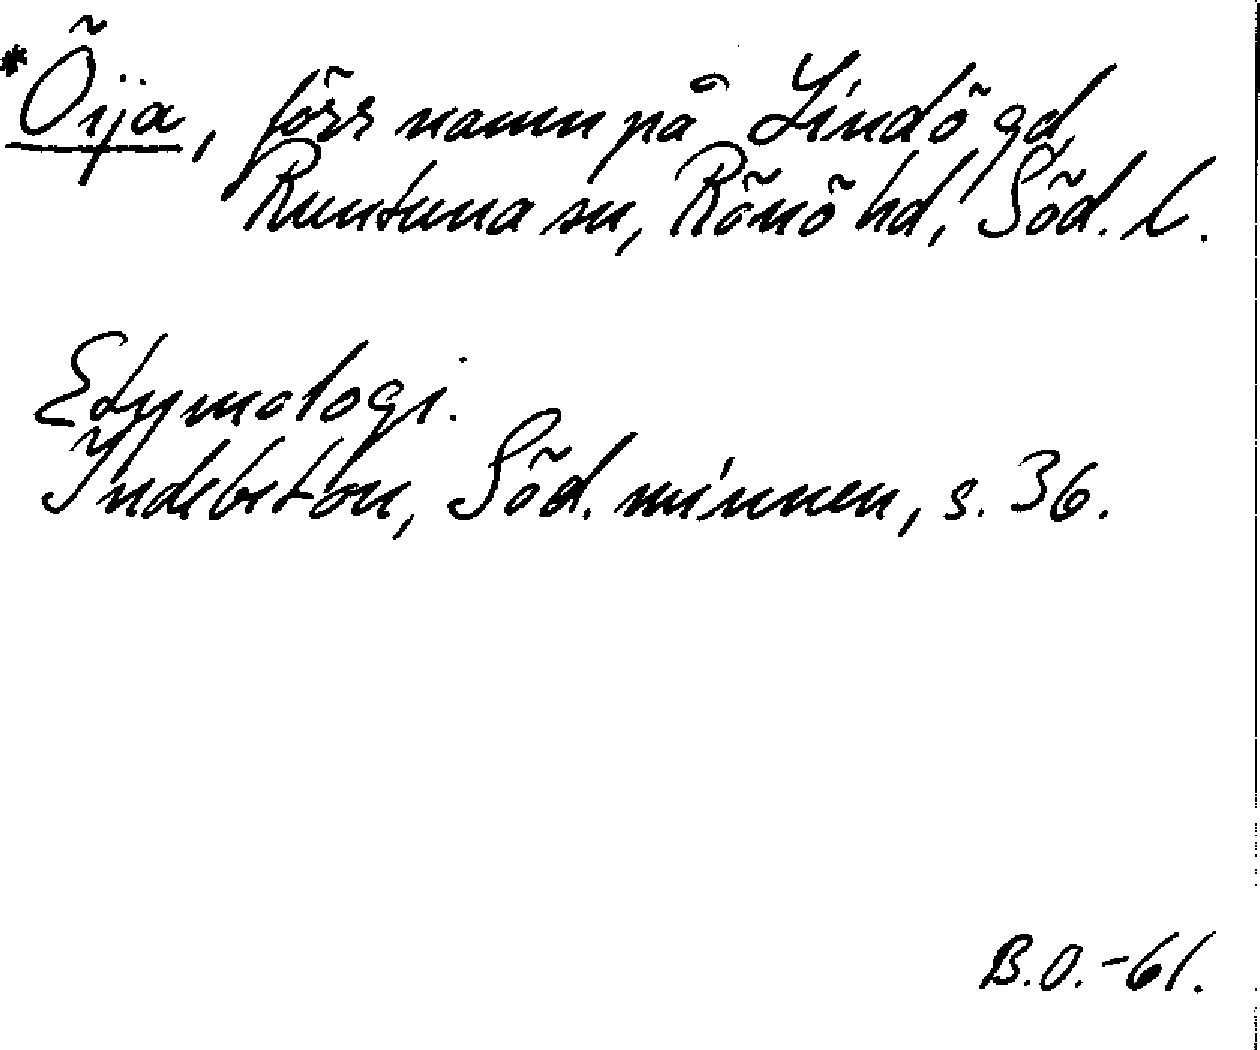 *Öija, förr namn på Lindö gd,
Runtuna sn, Rönö hd, Söd. l.
Etymologi.
Indebetou, Söd. minnen, s. 36.
B.O.-61.